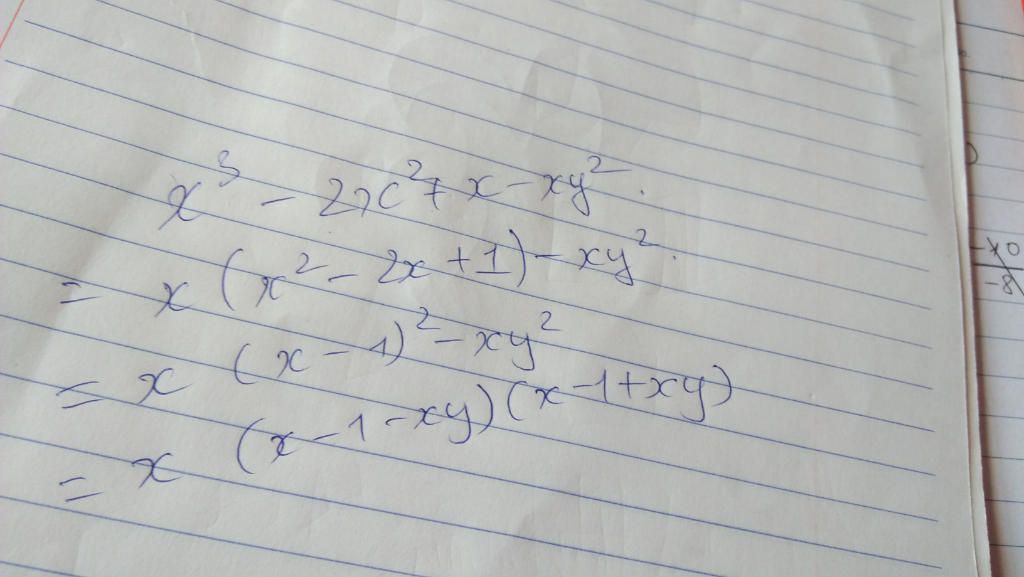 x³ - 2x² + x - xy².
= x (x² - 2x + 1) - xy².
= x (x - 1)² - xy²
= x (x - 1 - xy) (x - 1 + xy)
-10
-8